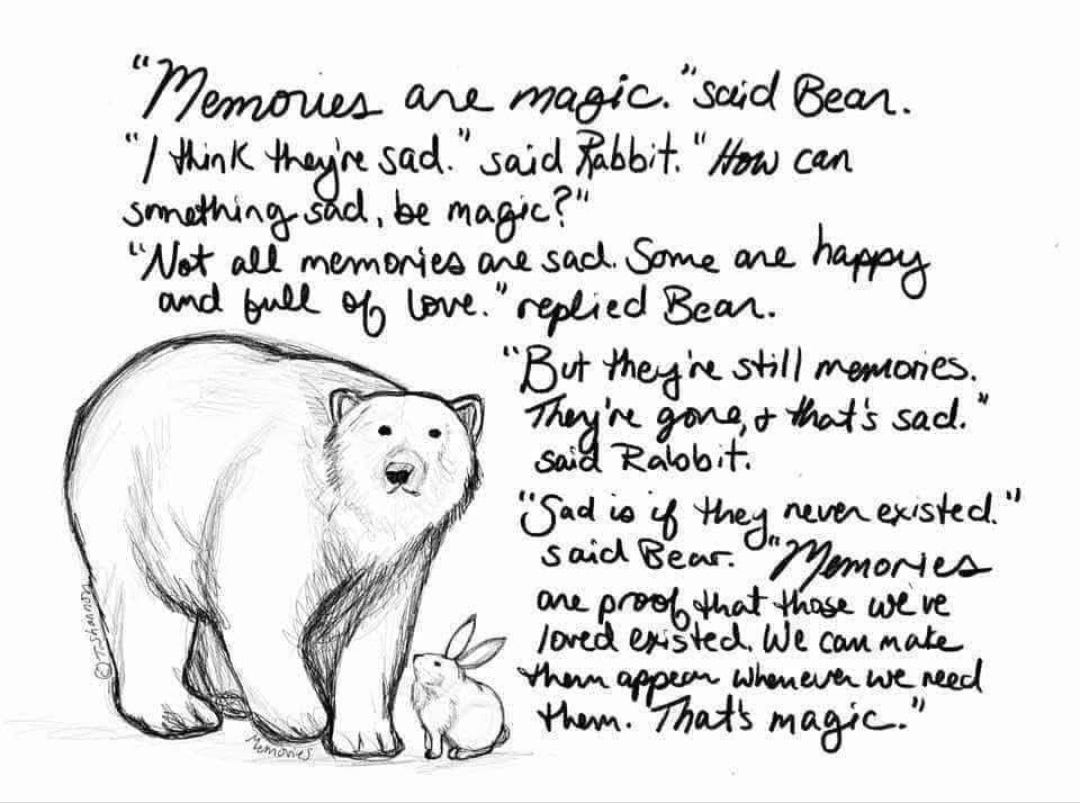 "Memories are magic." said Bear.
"I think they're sad." said Rabbit. "How can
something sad, be magic?"
"Not all memories are sad. Some are happy
and full of love." replied Bear.
"But they're still memories.
They're gone, & that's sad."
said Rabbit.
"Sad is if they never existed."
said Bear. "Memories
are proof that those we've
loved existed. We can make
them appear whenever we need
them. That's magic."
©T.Shannon
Memories